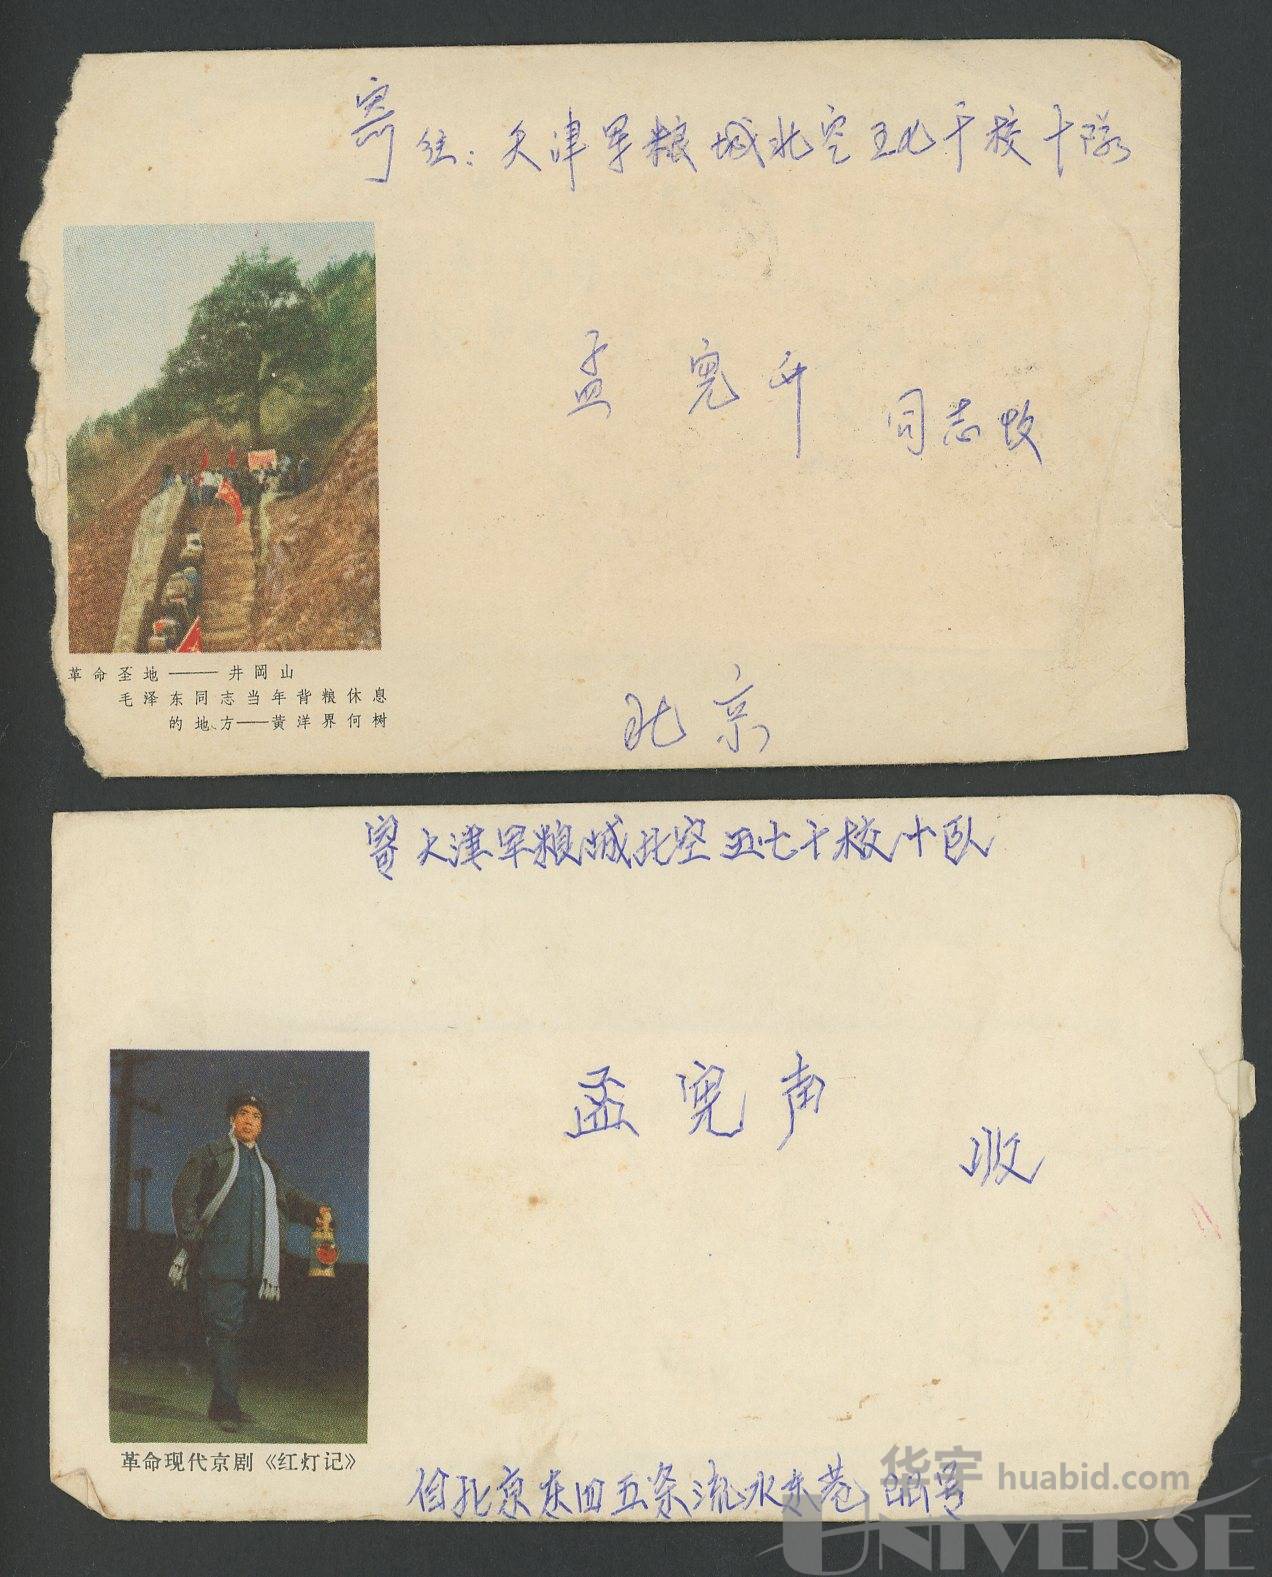 寄往：天津军粮城北空五七干校十队
孟宪升
同志收
革命圣地——井冈山
毛泽东同志当年背粮休息
的地方——黄洋界何树
北京
寄天津军粮城北空五七干校十队
孟宪声
收
革命现代京剧《红灯记》
自北京东四五条流水东巷 号
华宇 huabid.com
UNIVERSE